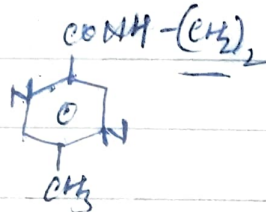 CONH-(CH3)2
N
N
CH3